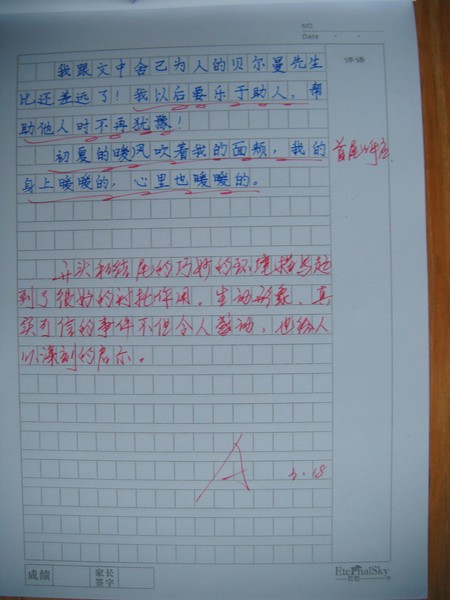 NO.
Date
评语
我跟文中舍己为人的贝尔曼先生
比还差远了！我以后要乐于助人，帮
助他人时不再犹豫！
初夏的暖风吹着我的面颊，我的
身上暖暖的，心里也暖暖的。
首尾呼应
开头和结尾的巧妙的环境描写起
到了很好的衬托作用。生动形象、真
实可信的事件不但令人感动，也给人
以深刻的启示。
A
3.18
成绩
家长
签字
EternalSky